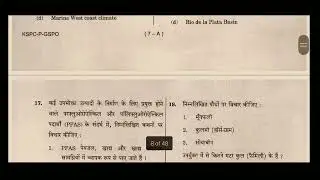 (d) Marine West coast climate
(d) Rio de la Plata Basin
KSPC-P-GSPO
( 7 – A )
17. कई उपभोक्ता उत्पादों के निर्माण के लिए प्रयुक्त होने
वाले परफ्लुओरोऐल्किल और पॉलिफ्लुओरोऐल्किल
पदार्थों (PFAS) के संदर्भ में, निम्नलिखित कथनों पर
विचार कीजिए :
1. PFAS पेयजल, खाद्य और खाद्य
सामग्रियों में व्यापक रूप से पाए जाते हैं ।
18. निम्नलिखित पौधों पर विचार कीजिए :
1. मूँगफली
2. कुलथी (हॉर्स-ग्राम)
3. सोयाबीन
उपर्युक्त में से कितने मटर कुल (फैमिली) के हैं ?
8 of 48